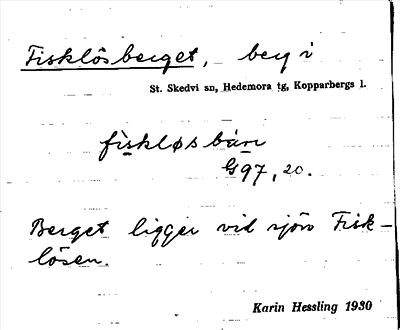 Fisklösberget, berg i
St. Skedvi sn, Hedemora tg, Kopparbergs l.
fiskløsbärı
G97, 20.
Berget ligger vid sjön Fisk-
lösen.
Karin Hessling 1930